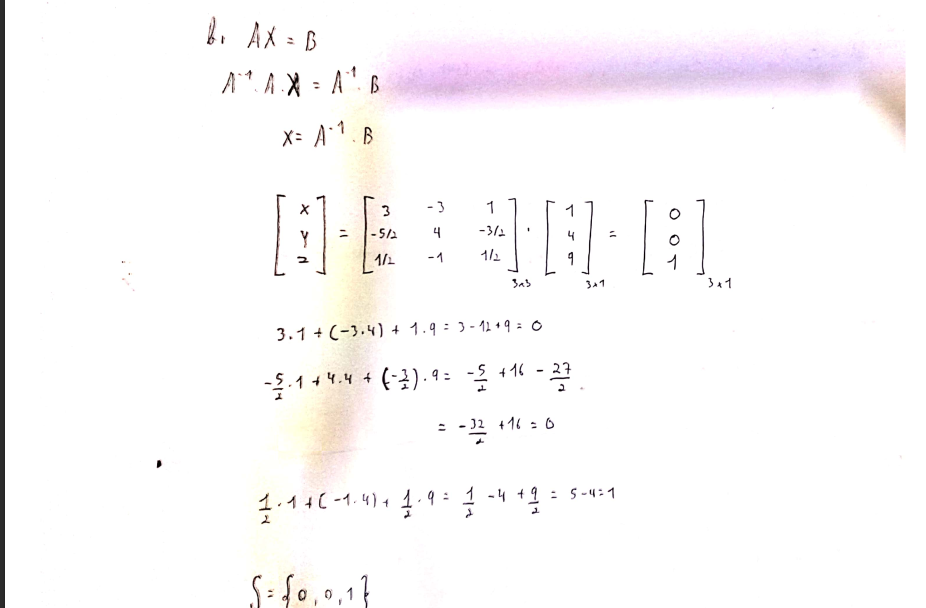 b. AX = B
A⁻¹.A.X = A⁻¹.B
X = A⁻¹.B
[x y z] = [3 -3 1; -5/2 4 -3/2; 1/2 -1 1/2]3x3 . [1 4 9]3x1 = [0 0 1]3x1
3.1 + (-3.4) + 1.9 = 3 - 12 + 9 = 0
-5/2.1 + 4.4 + (-3/2).9 = -5/2 + 16 - 27/2
= -32/2 + 16 = 0
1/2.1 + (-1.4) + 1/2.9 = 1/2 - 4 + 9/2 = 5-4=1
S = {0, 0, 1}